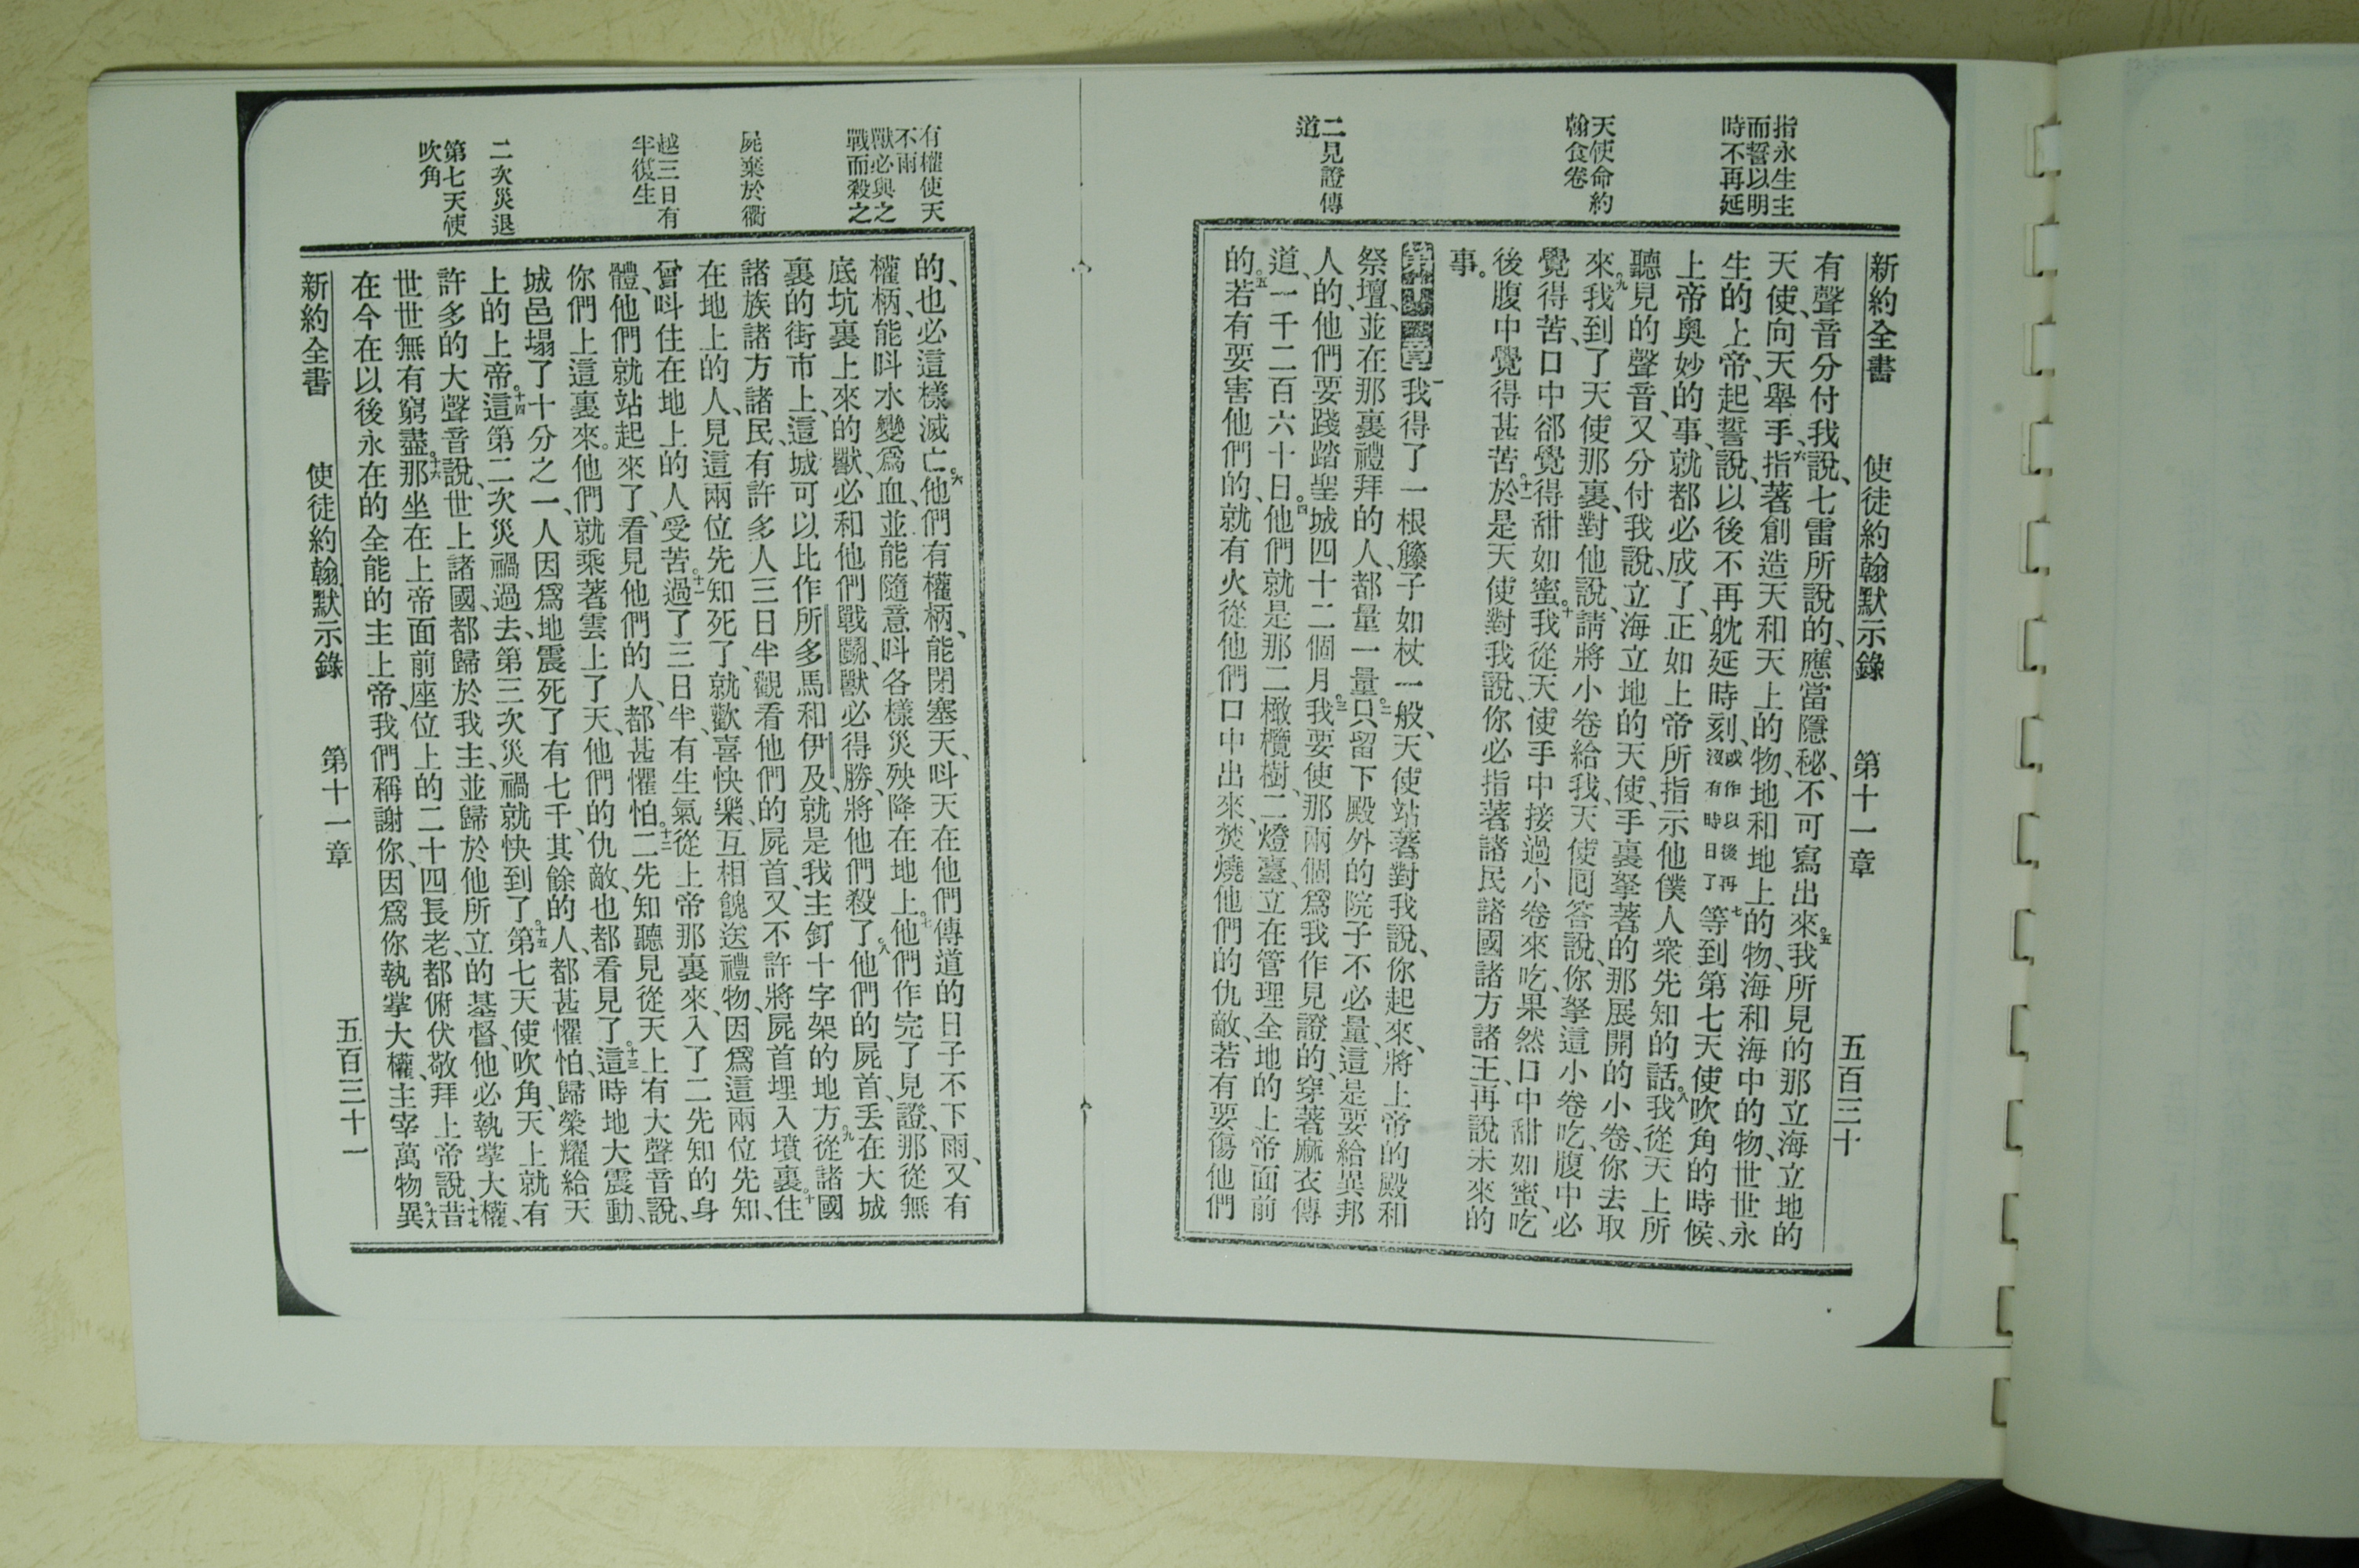 指永生主
而誓以明
時不再延
天使命約
翰食卷
二見證傳
道
新約全書 使徒約翰默示錄 第十一章 五百三十
有聲音分付我說、七雷所說的、應當隱秘、不可寫出來。五我所見的那立海立地的
天使、向天舉手、六指著創造天和天上的物、地和地上的物、海和海中的物、世世永
生的上帝、起誓說、以後不再躭延時刻、或作以後再沒有時日了七等到第七天使吹角的時候、
上帝奧妙的事、就都必成了、正如上帝所指示他僕人衆先知的話。八我從天上所
聽見的聲音、又分付我說、立海立地的天使、手裏拏著的那展開的小卷、你去取
來。九我到了天使那裏、對他說、請將小卷給我、天使回答說、你拏這小卷吃、腹中必
覺得苦、口中郤覺得甜如蜜。十我從天使手中接過小卷來吃、果然口中甜如蜜、吃
後腹中覺得甚苦。十一於是天使對我說、你必指著諸民諸國諸方諸王、再說未來的
事。
第十一章一我得了一根籐子如杖一般、天使站著對我說、你起來、將上帝的殿和
祭壇、並在那裏禮拜的人、都量一量。二只留下殿外的院子不必量、這是要給異邦
人的、他們要踐踏聖城四十二個月。三我要使那兩個爲我作見證的、穿著麻衣傳
道、一千二百六十日。四他們就是那二橄欖樹、二燈臺、立在管理全地的上帝面前
的。五若有要害他們的、就有火從他們口中出來、焚燒他們的仇敵、若有要傷他們
有權使天
不雨
獸必與之
戰而殺之
屍棄於衢
越三日有
半復生
二次災退
第七天使
吹角
的、也必這樣滅亡。六他們有權柄、能閉塞天、呌天在他們傳道的日子不下雨、又有
權柄、能呌水變爲血、並能隨意呌各樣災殃降在地上。七他們作完了見證、那從無
底坑裏上來的獸、必和他們戰鬭、獸必得勝、將他們殺了。八他們的屍首、丟在大城
裏的街市上、這城可以比作所多馬和伊及、就是我主釘十字架的地方。九從諸國
諸族諸方諸民、有許多人三日半觀看他們的屍首、又不許將屍首埋入墳裏。十住
在地上的人、見這兩位先知死了、就歡喜快樂、互相餽送禮物、因爲這兩位先知、
曾呌住在地上的人受苦。十一過了三日半、有生氣從上帝那裏來、入了二先知的身
體、他們就站起來了、看見他們的人、都甚懼怕。十二二先知聽見從天上有大聲音說、
你們上這裏來。他們就乘著雲上了天、他們的仇敵、也都看見了。十三這時地大震動、
城邑塌了十分之一、人因爲地震死了有七千、其餘的人、都甚懼怕、歸榮耀給天
上的上帝。十四這第二次災禍過去、第三次災禍就快到了。十五第七天使吹角、天上就有
許多的大聲音說、世上諸國、都歸於我主、並歸於他所立的基督、他必執掌大權、
世世無有窮盡。十六那坐在上帝面前座位上的二十四長老、都俯伏敬拜上帝說、十七昔
在今在以後永在的全能的主上帝、我們稱謝你、因爲你執掌大權、主宰萬物。十八異
新約全書 使徒約翰默示錄 第十一章 五百三十一